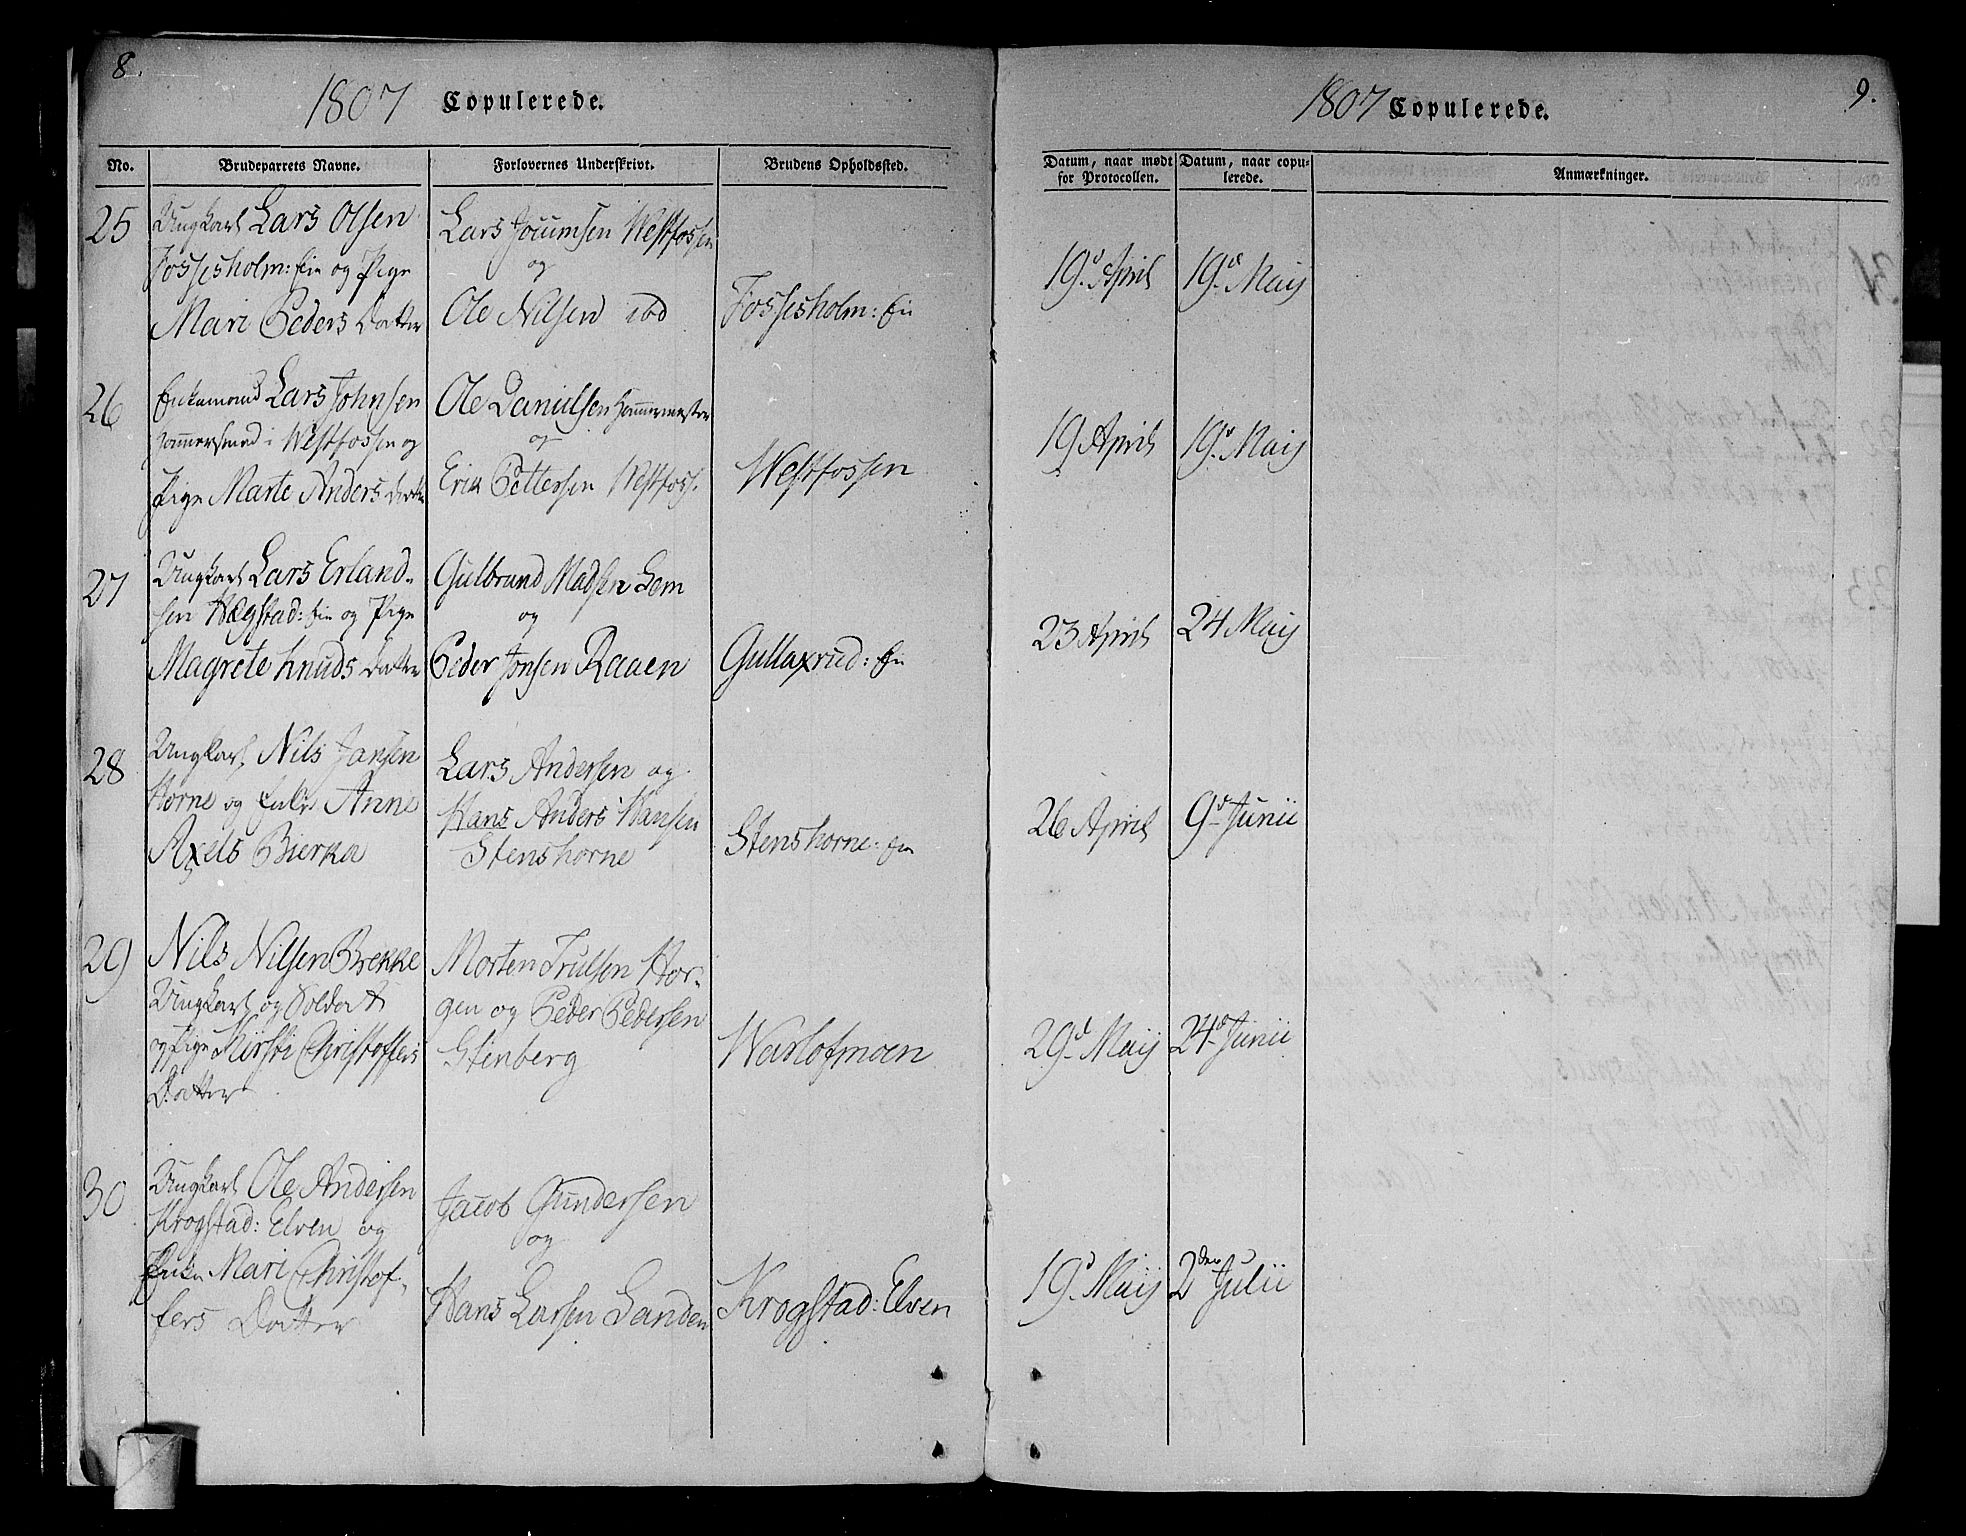 8.
1807 Copulerede.
No.
Brudeparrets Navne.
Forlovernes Underskrivt.
Brudens Opholdssted.
25
Ungkarl Lars Olsen
Fossesholm: Eie og Pige
Mari Peders Datter
Lars Jocumsen Westfossen
og
Ole Nilsen ibd
Fossesholm: Eie
26
Enkemand Lars Johnsen
Hammersmed i Westfossen og
Pige Marte Anders Datter
Ole Danielsen Hammermester
og
Erik Pettersen Westfoss.
Westfossen
27
Ungkarl Lars Erland-
sen Hægstad: Eie og Pige
Magrete Knuds Datter
Gulbrand Madsen Sem
og
Peder Jonsen Raaen
Gullaxrud: Eie
28
Ungkarl Nils Jansen
Horne og Enke Anne
Axels Bierka
Lars Andersen og
Hans Anders Hansen
Stenshorne
Stenshorne: Eie
29
Nils Nilsen Brekke
Ungkarl og Soldat
og Pige Kirsti Christoffers
Datter
Morten Trulsen Hor-
gen og Peder Pedersen
Stenberg
Warlofmoen
30
Ungkarl Ole Andersen
Krogstad: Elven og
Enke Mari Christof-
fers Datter
Jacob Gundersen
og
Hans Larsen Sanden
Krogstad: Elven
9.
1807 Copulerede.
Datum, naar mødt
for Protocollen.
Datum, naar copu-
lerede.
Anmærkninger.
19d April
19d Maij
19 April
19d Maij
23 April
24 Maij
26 April
9d Junii
29d Maij
24d Junii
19d Maij
2den Julii